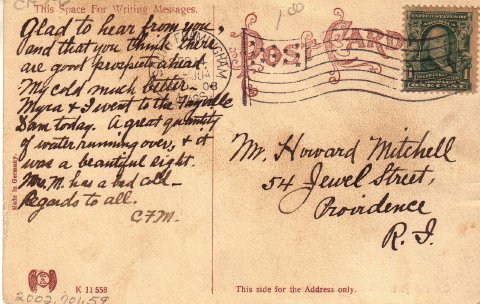 This Space For Writing Messages.
Glad to hear from you,
and that you think there
are good prospects ahead.
My cold much better.
Myra & I went to the
Dam today. A great quantity
of water running over, & it
was a beautiful sight.
Mr. M. has a bad cold.
Regards to all.
C.F.M.
Made in Germany.
K 11558
2002.701.59
1.00
POST CARD
MINGHAM
UNITED STATES OF AMERICA
1
ONE CENT
Mr. Howard Mitchell
54 Jewel Street,
Providence
R. I.
This side for the Address only.